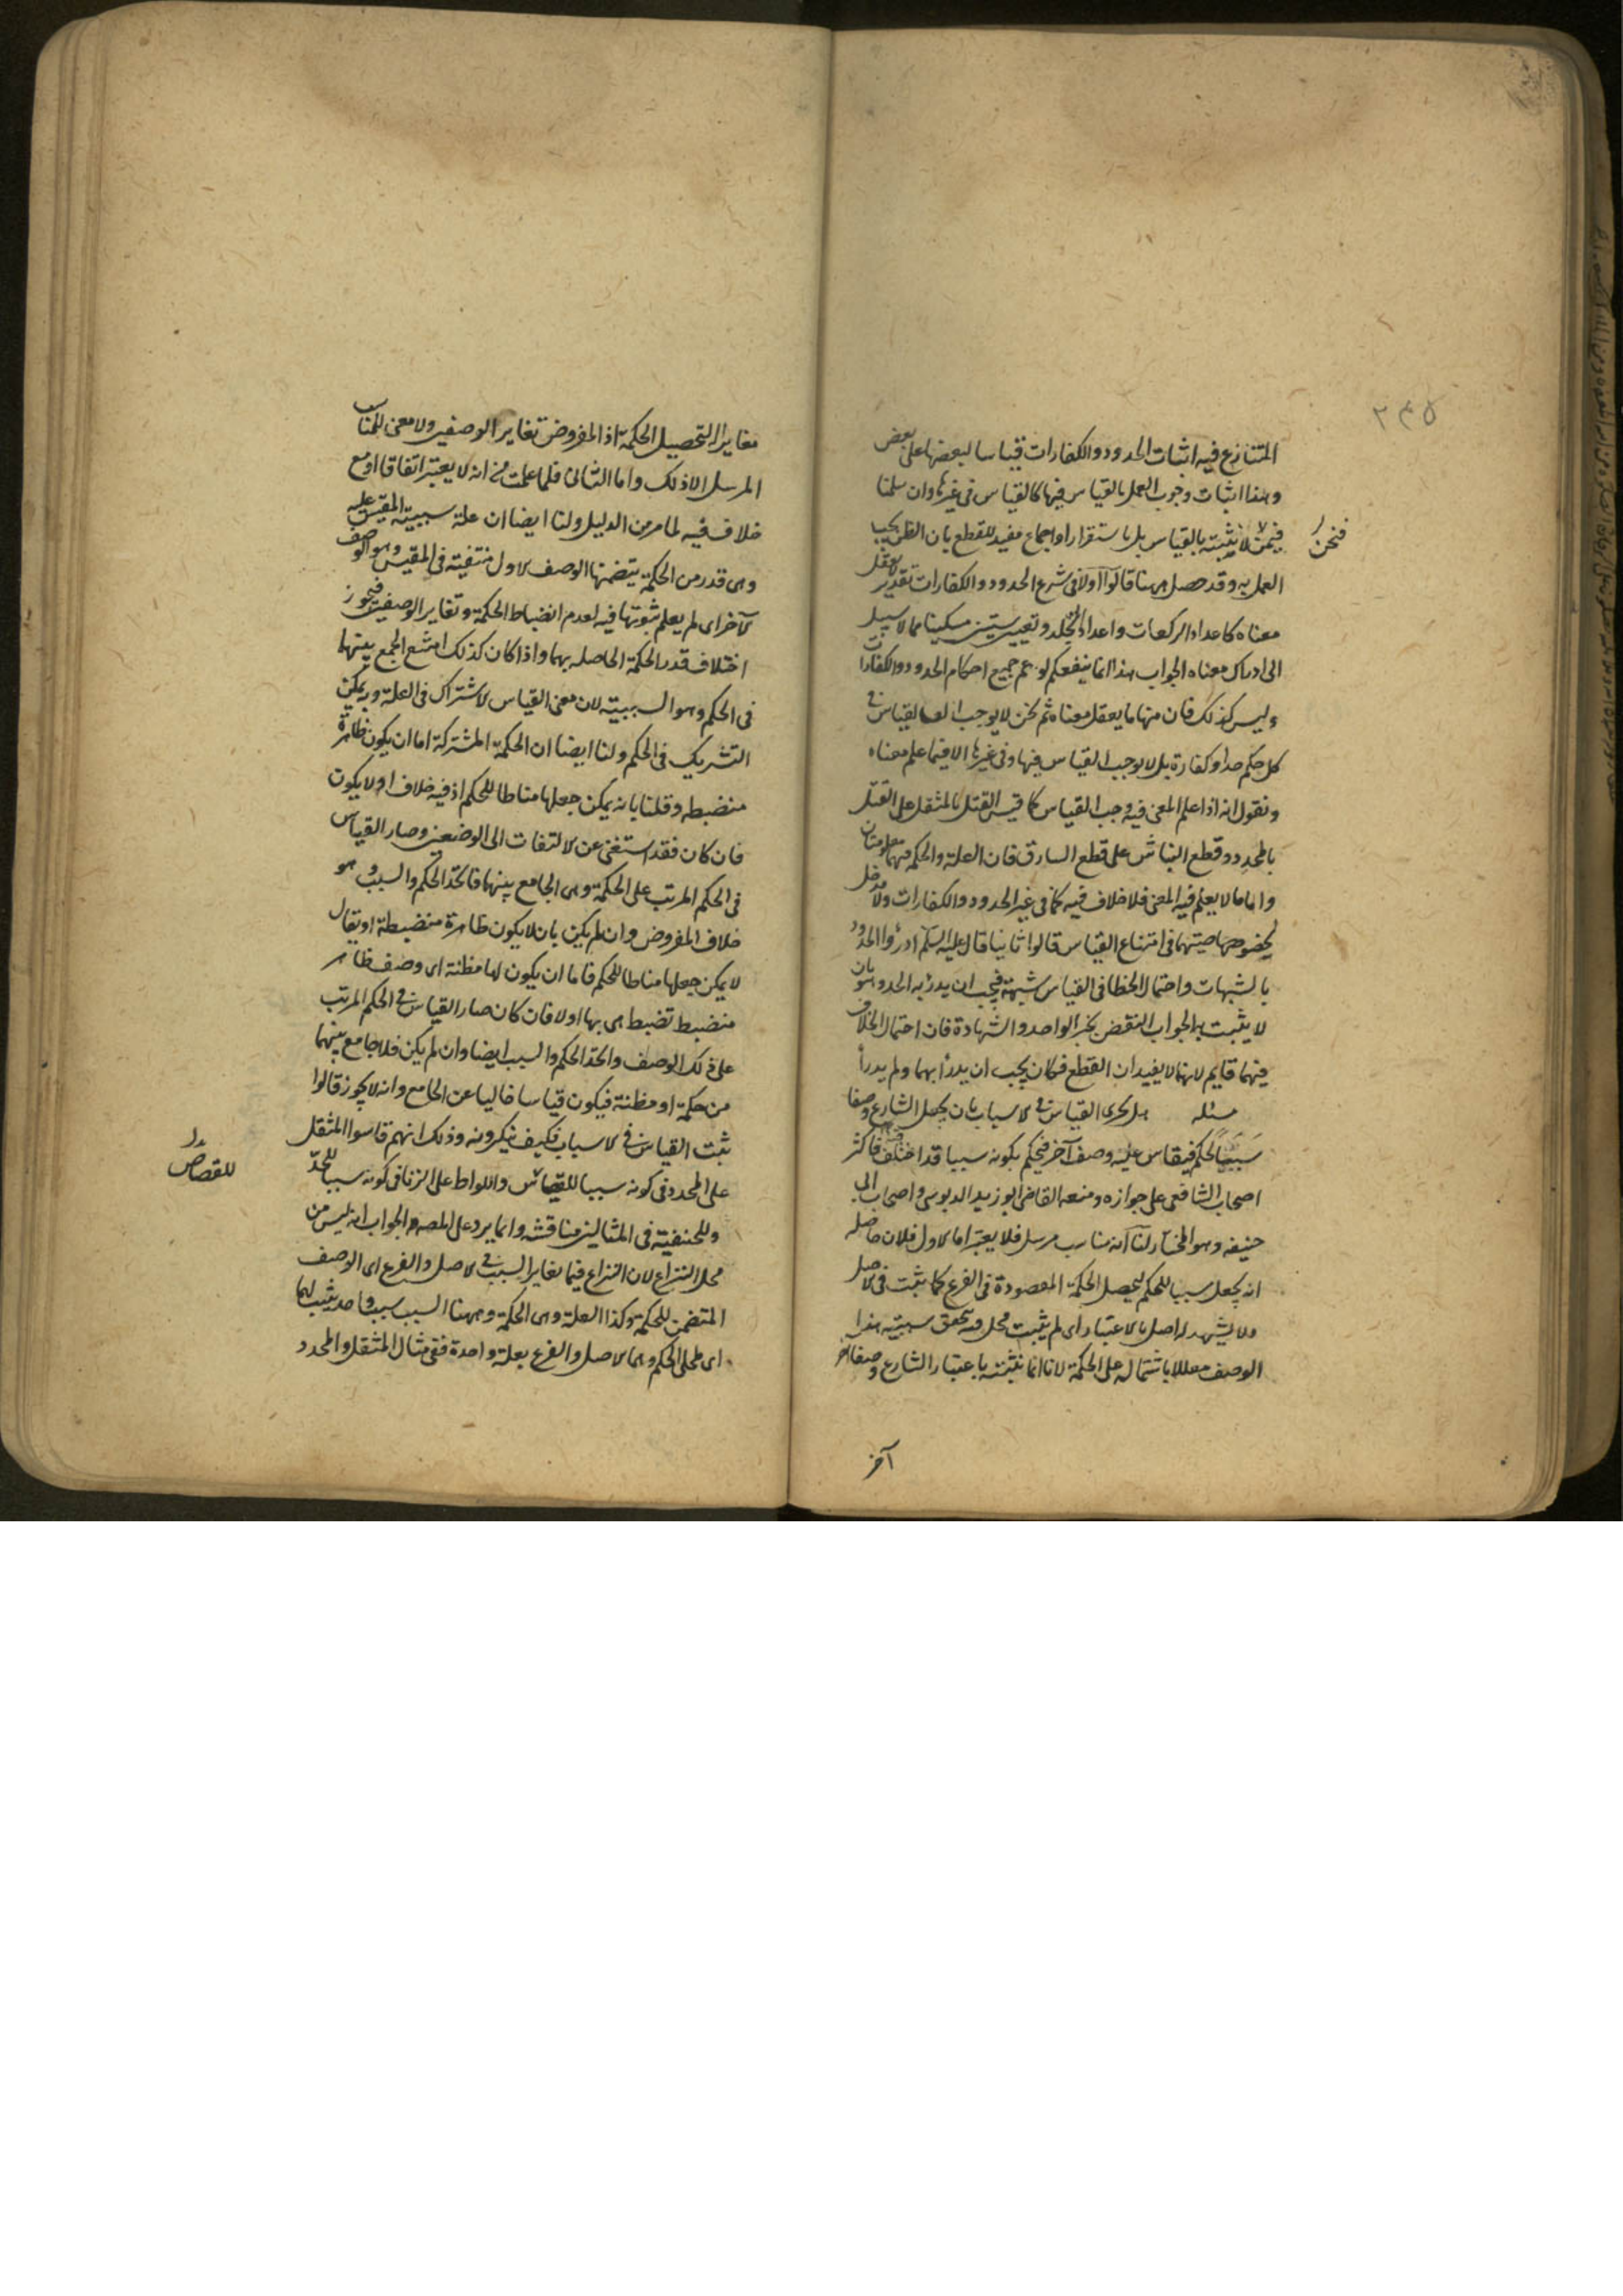 ٢٤٥
المتنازع فيه اثبات الحدود والكفارات قياسا لبعضها على بعض
وهذا اثبات وجوب العمل بالقياس فيها كالقياس فى غيرها وان سلمنا
فنحن لا نثبته بالقياس بل باستقرار او اجماع مفيد للقطع بان الظن يجب
فنحن
العمل به وقد حصل ههنا قالوا اولا فى شرع الحدود والكفارات تقدير لا يعقل
معناه كاعداد الركعات واعداد الجلد وتعيين ستين مسكينا مما لا سبيل
الى ادراك معناه الجواب هذا انما ينفعكم لو عم جميع احكام الحدود والكفارات
وليس كذلك فان منها ما يعقل معناه ثم نحن لا يوجب القياس فى
كل حكم حد او كفارة بل لا يوجب القياس فيها وفى غيرها الا فيما علم معناه
ونقول انه اذا علم المعنى فيه وجب القياس كما قيس القتل بالمثقل على القتل
بالمحدد وقطع النباش على قطع السارق فان العلة والحكمة فيهما معلومتان
واما ما لا يعلم فيه المعنى فلا خلاف فيه كما فى غير الحدود والكفارات ولا مدخل
لخصوصيتهما فى امتناع القياس قالوا ثانيا قال عليه السلم ادرؤا الحدود
بالشبهات واحتمال الخطا فى القياس شبهة فيجب ان يدرئ به الحد وهو بان
لا يثبت به الجواب النقض بخبر الواحد والشهادة فان احتمال الخلاف
فيهما قايم لانهما لا يفيدان القطع فكان يجب ان يدرأ بهما ولم يدرأ
مسئله هل يجرى القياس فى الاسباب بان يجعل الشارع وصفا
سببا لحكم فيقاس عليه وصف آخر فيحكم بكونه سببا قد اختلف فيه فاكثر
اصحاب الشافعى على جوازه ومنعه القاضى ابو زيد الدبوسى واصحاب ابى
حنيفه وهو المختار لنا انه مناسب مرسل فلا يعتبر اما الاول فلان حاصله
انه يجعل سببا للحكم ليحصل الحكمة المقصودة فى الفرع كما ثبت فى الاصل
ولا يشهد له اصل بالاعتبار اى لم يثبت محل فيه تحقق سببية هذا
الوصف معللا باشتماله على الحكمة لانا انما نثبته باعتبار الشارع وصفا آخر
آخر
مغايرا لتحصيل الحكمة اذ المفروض تغاير الوصفين ولا معنى للمناسب
المرسل الا ذلك واما الثانى فلما علمت من انه لا يعتبر اتفاقا او مع
خلاف فيه لما مر من الدليل ولنا ايضا ان علة سببية المقيس عليه
وهى قدر من الحكمة يتضمنها الوصف الاول منتفية فى المقيس وهو الوصف
الآخر اى لم يعلم ثبوتها فيه لعدم انضباط الحكمة وتغاير الوصفين فيجوز
اختلاف قدر الحكمة الحاصله بهما واذا كان كذلك امتنع الجمع بينهما
فى الحكم وهو السببية لان معنى القياس الاشتراك فى العلة وبه يمكن
التشريك فى الحكم ولنا ايضا ان الحكمة المشتركة اما ان يكون ظاهرة
منضبطه وقلنا بانه يمكن جعلها مناطا للحكم اذ فيه خلاف او لا يكون
فان كان فقد استغنى عن الالتفات الى الوضعين وصار القياس
فى الحكم المرتب على الحكمة وهى الجامع بينهما فاتحد الحكم والسبب وهو
خلاف المفروض وان لم يكن بان لا يكون ظاهرة منضبطة او يقال
لا يمكن جعلها مناطا للحكم فاما ان يكون لها مظنة اى وصف ظاهر
منضبط تضبط هى بها او لا فان كان صار القياس فى الحكم المرتب
على ذلك الوصف واتحد الحكم والسبب ايضا وان لم يكن فلا جامع بينهما
من حكمة او مظنة فيكون قياسا خاليا عن الجامع وانه لا يجوز قالوا
ثبت القياس فى الاسباب فكيف ينكرونه وذلك انهم قاسوا المثقل
على المحدد فى كونه سببا للقصاص واللواط على الزنا فى كونه سببا للحد
للقصاص
وللحنفية فى المثالين مناقشه وانما يرد على المصه والجواب انه ليس من
محل النزاع لان النزاع فيما تغاير السبب فى الاصل والفرع اى الوصف
المتضمن للحكمة وكذا العلة وهى الحكمة وههنا السبب سبب واحد يثبت لهما
اى لمحلى الحكم وهما الاصل والفرع بعلة واحدة ففى مثال المثقل والمحدد